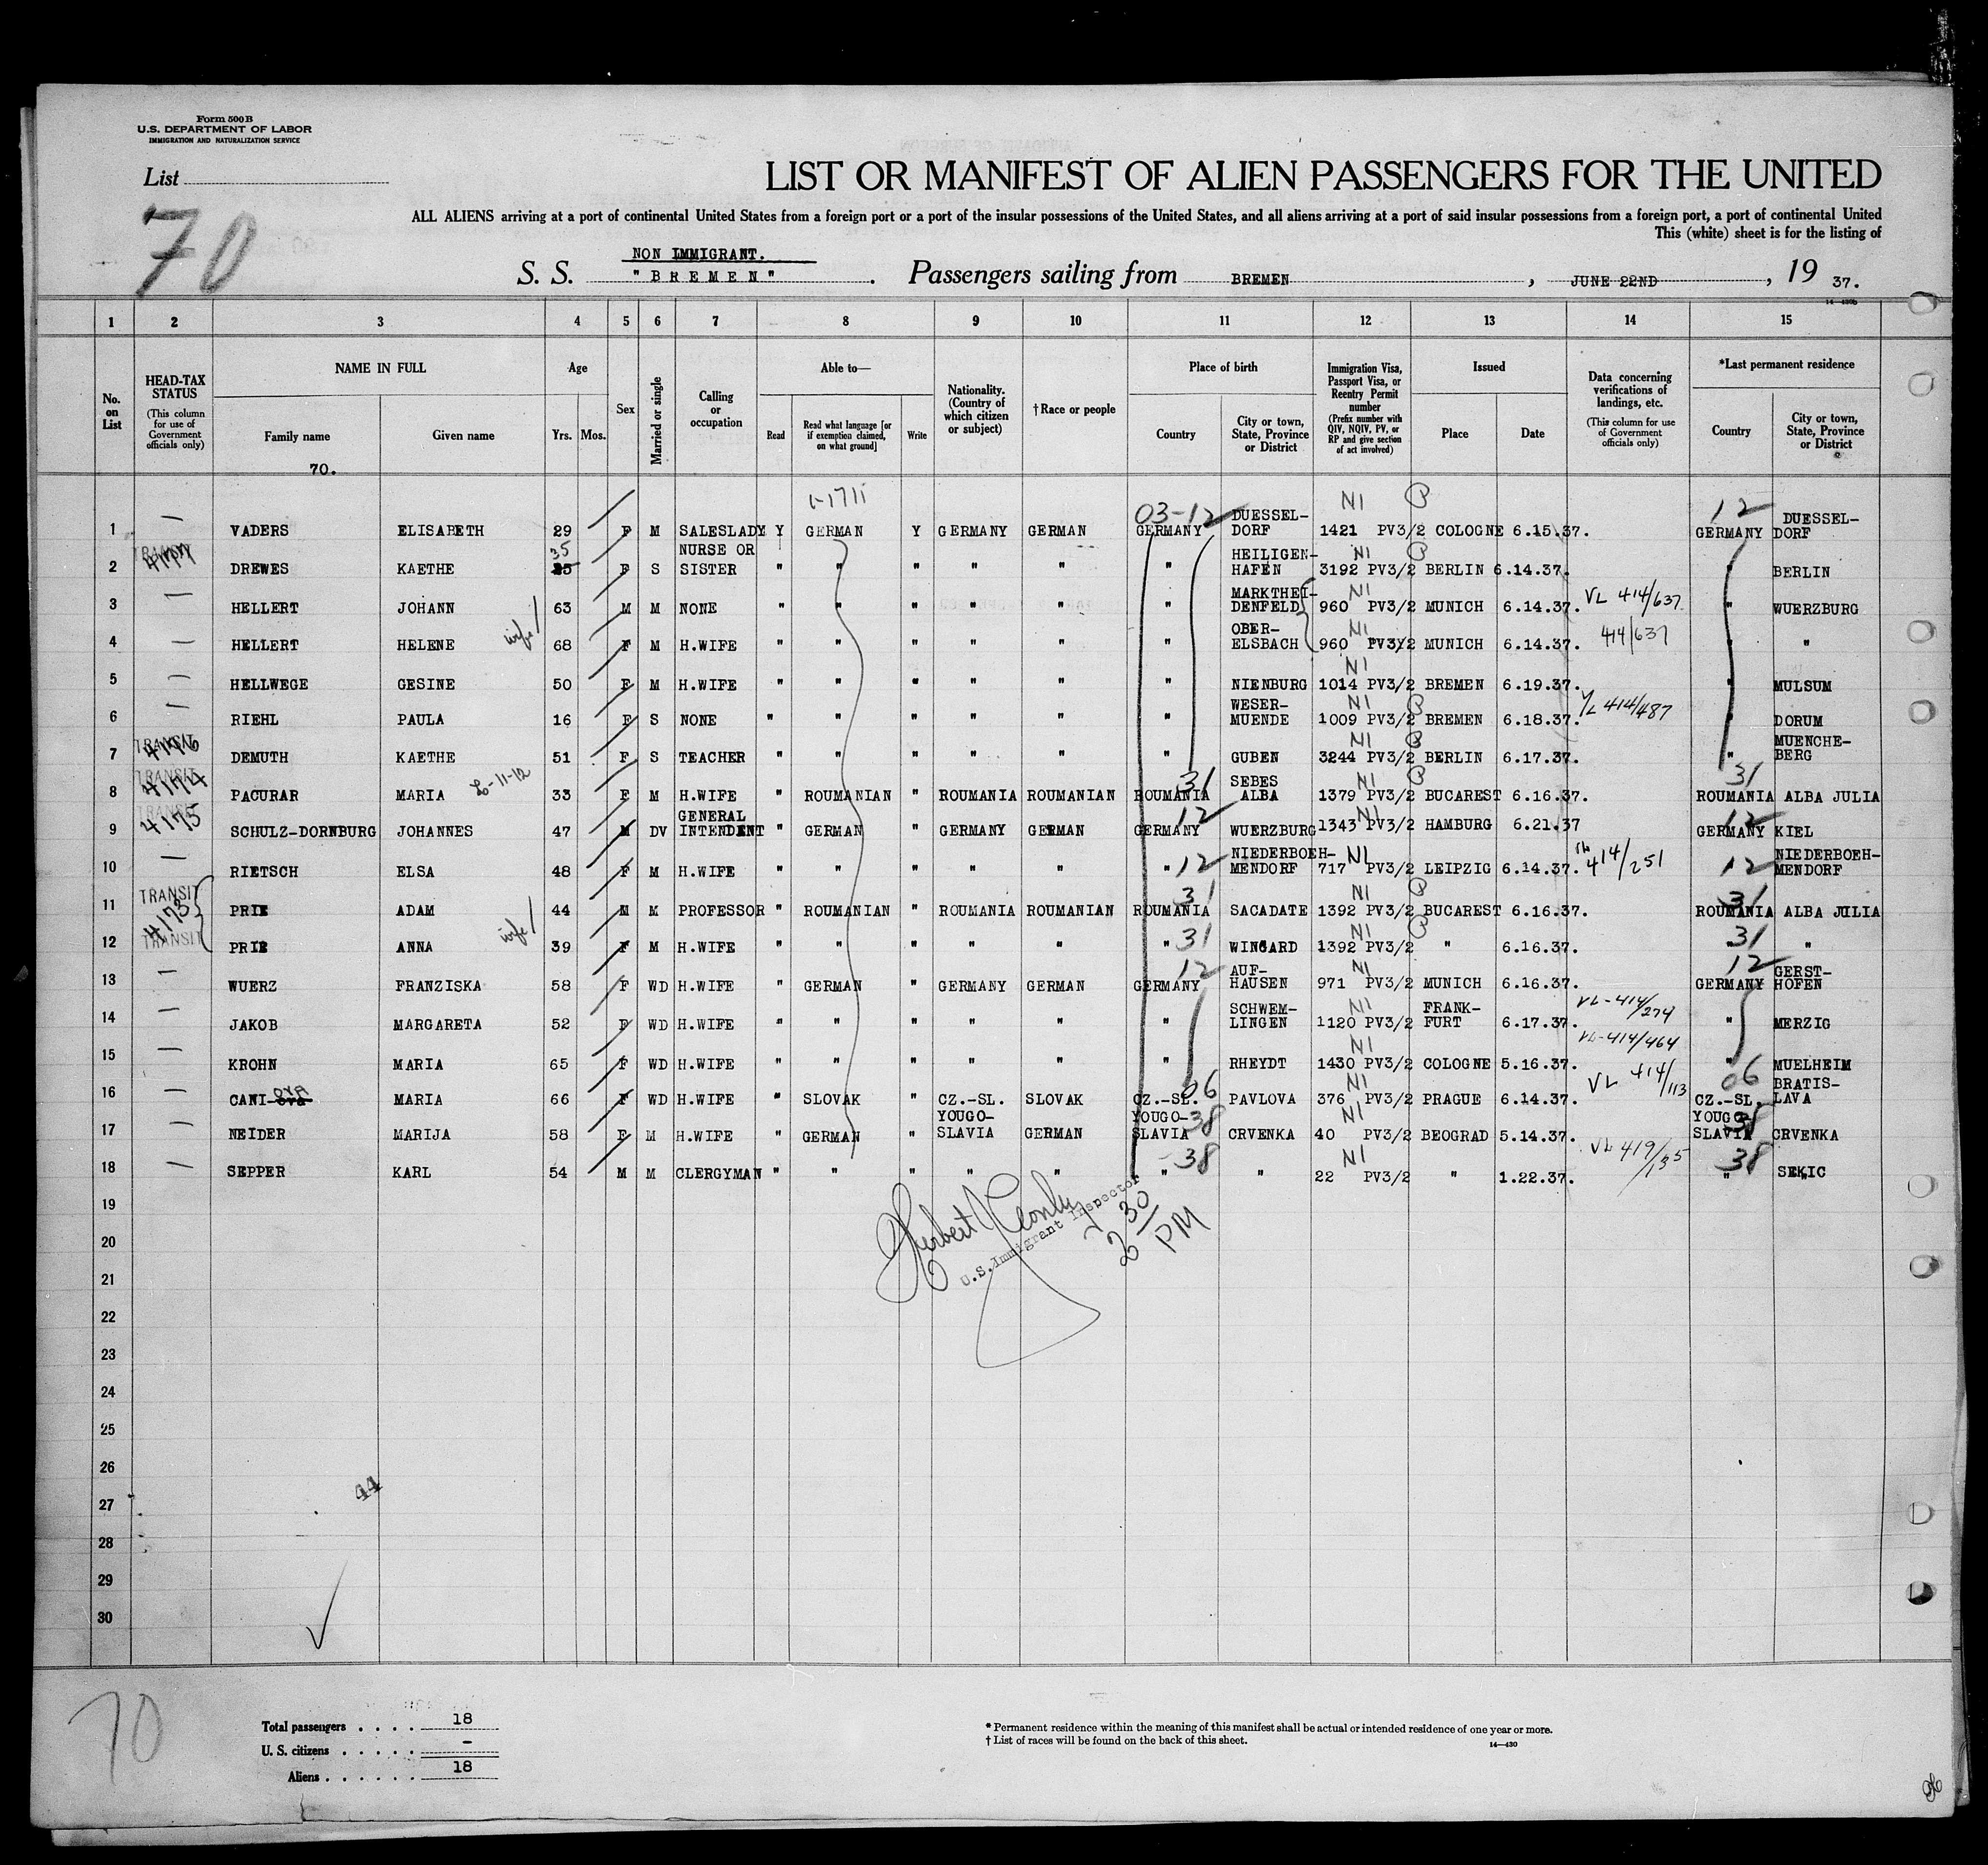 Form 500B
U.S. DEPARTMENT OF LABOR
IMMIGRATION AND NATURALIZATION SERVICE
List
70
LIST OR MANIFEST OF ALIEN PASSENGERS FOR THE UNITED
ALL ALIENS arriving at a port of continental United States from a foreign port or a port of the insular possessions of the United States, and all aliens arriving at a port of said insular possessions from a foreign port, a port of continental United
This (white) sheet is for the listing of
NON IMMIGRANT.
S. S. "BREMEN". Passengers sailing from BREMEN, JUNE 22ND, 19 37.
1 2 3 4 5 6 7 8 9 10 11 12 13 14 15
No. on List
HEAD-TAX STATUS (This column for use of Government officials only)
NAME IN FULL Family name Given name
70.
Age Yrs. Mos.
Sex
Married or single
Calling or occupation
Able to— Read Read what language [or if exemption claimed, on what ground] Write
Nationality. (Country of which citizen or subject)
†Race or people
Place of birth Country City or town, State, Province or District
Immigration Visa, Passport Visa, or Reentry Permit number (Prefix number with QIV, NQIV, PV, or RP and give section of act involved)
Issued Place Date
Data concerning verifications of landings, etc. (This column for use of Government officials only)
*Last permanent residence Country City or town, State, Province or District
1 — VADERS ELISABETH 29 F M SALESLADY Y GERMAN Y GERMANY GERMAN 03-12 GERMANY DUESSEL-DORF NI 1421 PV3/2 COLOGNE 6.15.37. 12 GERMANY DUESSEL-DORF
2 TRANSIT 4177 DREWES KAETHE 35 F S NURSE OR SISTER " " " " " " HEILIGEN-HAFEN NI 3192 PV3/2 BERLIN 6.14.37. " BERLIN
3 — HELLERT JOHANN 63 M M NONE " " " " " " MARKTHEI-DENFELD NI 960 PV3/2 MUNICH 6.14.37. VL 414/637 " WUERZBURG
4 — HELLERT HELENE wife 68 F M H.WIFE " " " " " " OBER-ELSBACH NI 960 PV3/2 MUNICH 6.14.37. 414/637 " "
5 — HELLWEGE GESINE 50 F M H.WIFE " " " " " " NIENBURG NI 1014 PV3/2 BREMEN 6.19.37. " MULSUM
6 — RIEHL PAULA 16 F S NONE " " " " " " WESER-MUENDE NI 1009 PV3/2 BREMEN 6.18.37. VL 414/487 " DORUM
7 TRANSIT 4176 DEMUTH KAETHE 51 F S TEACHER " " " " " " GUBEN NI 3244 PV3/2 BERLIN 6.17.37. " MUENCHE-BERG
8 TRANSIT 4174 PACURAR MARIA 33 F M H.WIFE " ROUMANIAN " ROUMANIA ROUMANIAN 31 ROUMANIA SEBES ALBA NI 1379 PV3/2 BUCAREST 6.16.37. 31 ROUMANIA ALBA JULIA
9 TRANSIT 4175 SCHULZ-DORNBURG JOHANNES 47 M DV GENERAL INTENDENT " GERMAN " GERMANY GERMAN 12 GERMANY WUERZBURG NI 1343 PV3/2 HAMBURG 6.21.37 12 GERMANY KIEL
10 — RIETSCH ELSA 48 F M H.WIFE " " " " " " 12 NIEDERBOEH-MENDORF NI 717 PV3/2 LEIPZIG 6.14.37. VL 414/251 12 NIEDERBOEH-MENDORF
11 TRANSIT 4173 PRIE ADAM 44 M M PROFESSOR " ROUMANIAN " ROUMANIA ROUMANIAN 31 ROUMANIA SACADATE NI 1392 PV3/2 BUCAREST 6.16.37. 31 ROUMANIA ALBA JULIA
12 TRANSIT PRIE ANNA wife 39 F M H.WIFE " " " " " " 31 WINGARD NI 1392 PV3/2 " 6.16.37. 31 " "
13 — WUERZ FRANZISKA 58 F WD H.WIFE " GERMAN " GERMANY GERMAN 12 GERMANY AUF-HAUSEN NI 971 PV3/2 MUNICH 6.16.37. 12 GERMANY GERST-HOFEN
14 — JAKOB MARGARETA 52 F WD H.WIFE " " " " " " SCHWEM-LINGEN NI 1120 PV3/2 FRANK-FURT 6.17.37. VL-414/274 " MERZIG
15 — KROHN MARIA 65 F WD H.WIFE " " " " " " RHEYDT NI 1430 PV3/2 COLOGNE 5.16.37. VL-414/464 " MUELHEIM
16 — CANI-ova MARIA 66 F WD H.WIFE " SLOVAK " CZ.-SL. SLOVAK 06 CZ.-SL. PAVLOVA NI 376 PV3/2 PRAGUE 6.14.37. VL 414/113 06 CZ.-SL. BRATIS-LAVA
17 — NEIDER MARIJA 58 F M H.WIFE " GERMAN " YOUGO-SLAVIA GERMAN 38 YOUGO-SLAVIA CRVENKA NI 40 PV3/2 BEOGRAD 5.14.37. 38 YOUGO-SLAVIA CRVENKA
18 — SEPPER KARL 54 M M CLERGYMAN " " " " " 38 " " NI 22 PV3/2 " 1.22.37. VL 419/135 38 " SEKIC
19
20
21
22
23
24
25
26
27
28
29
30
U.S. Immigrant Inspector
2 30 PM
44
70
Total passengers . . . . 18
U. S. citizens . . . . . -
Aliens . . . . . . 18
* Permanent residence within the meaning of this manifest shall be actual or intended residence of one year or more.
† List of races will be found on the back of this sheet.
14—430